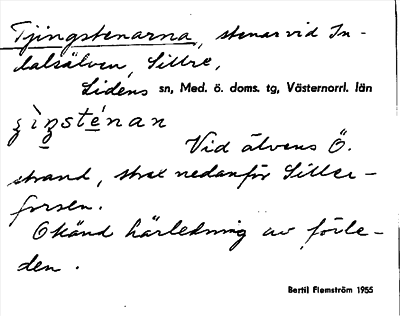 Tjingstenarna, stenar vid In-
dalsälven, Sillre,
Lidens sn, Med. ö. doms. tg, Västernorrl. län
Vid älvens Ö.
strand, strax nedanför Sillre-
forsen.
Okänd härledning av förle-
den.
Bertil Flemström 1955